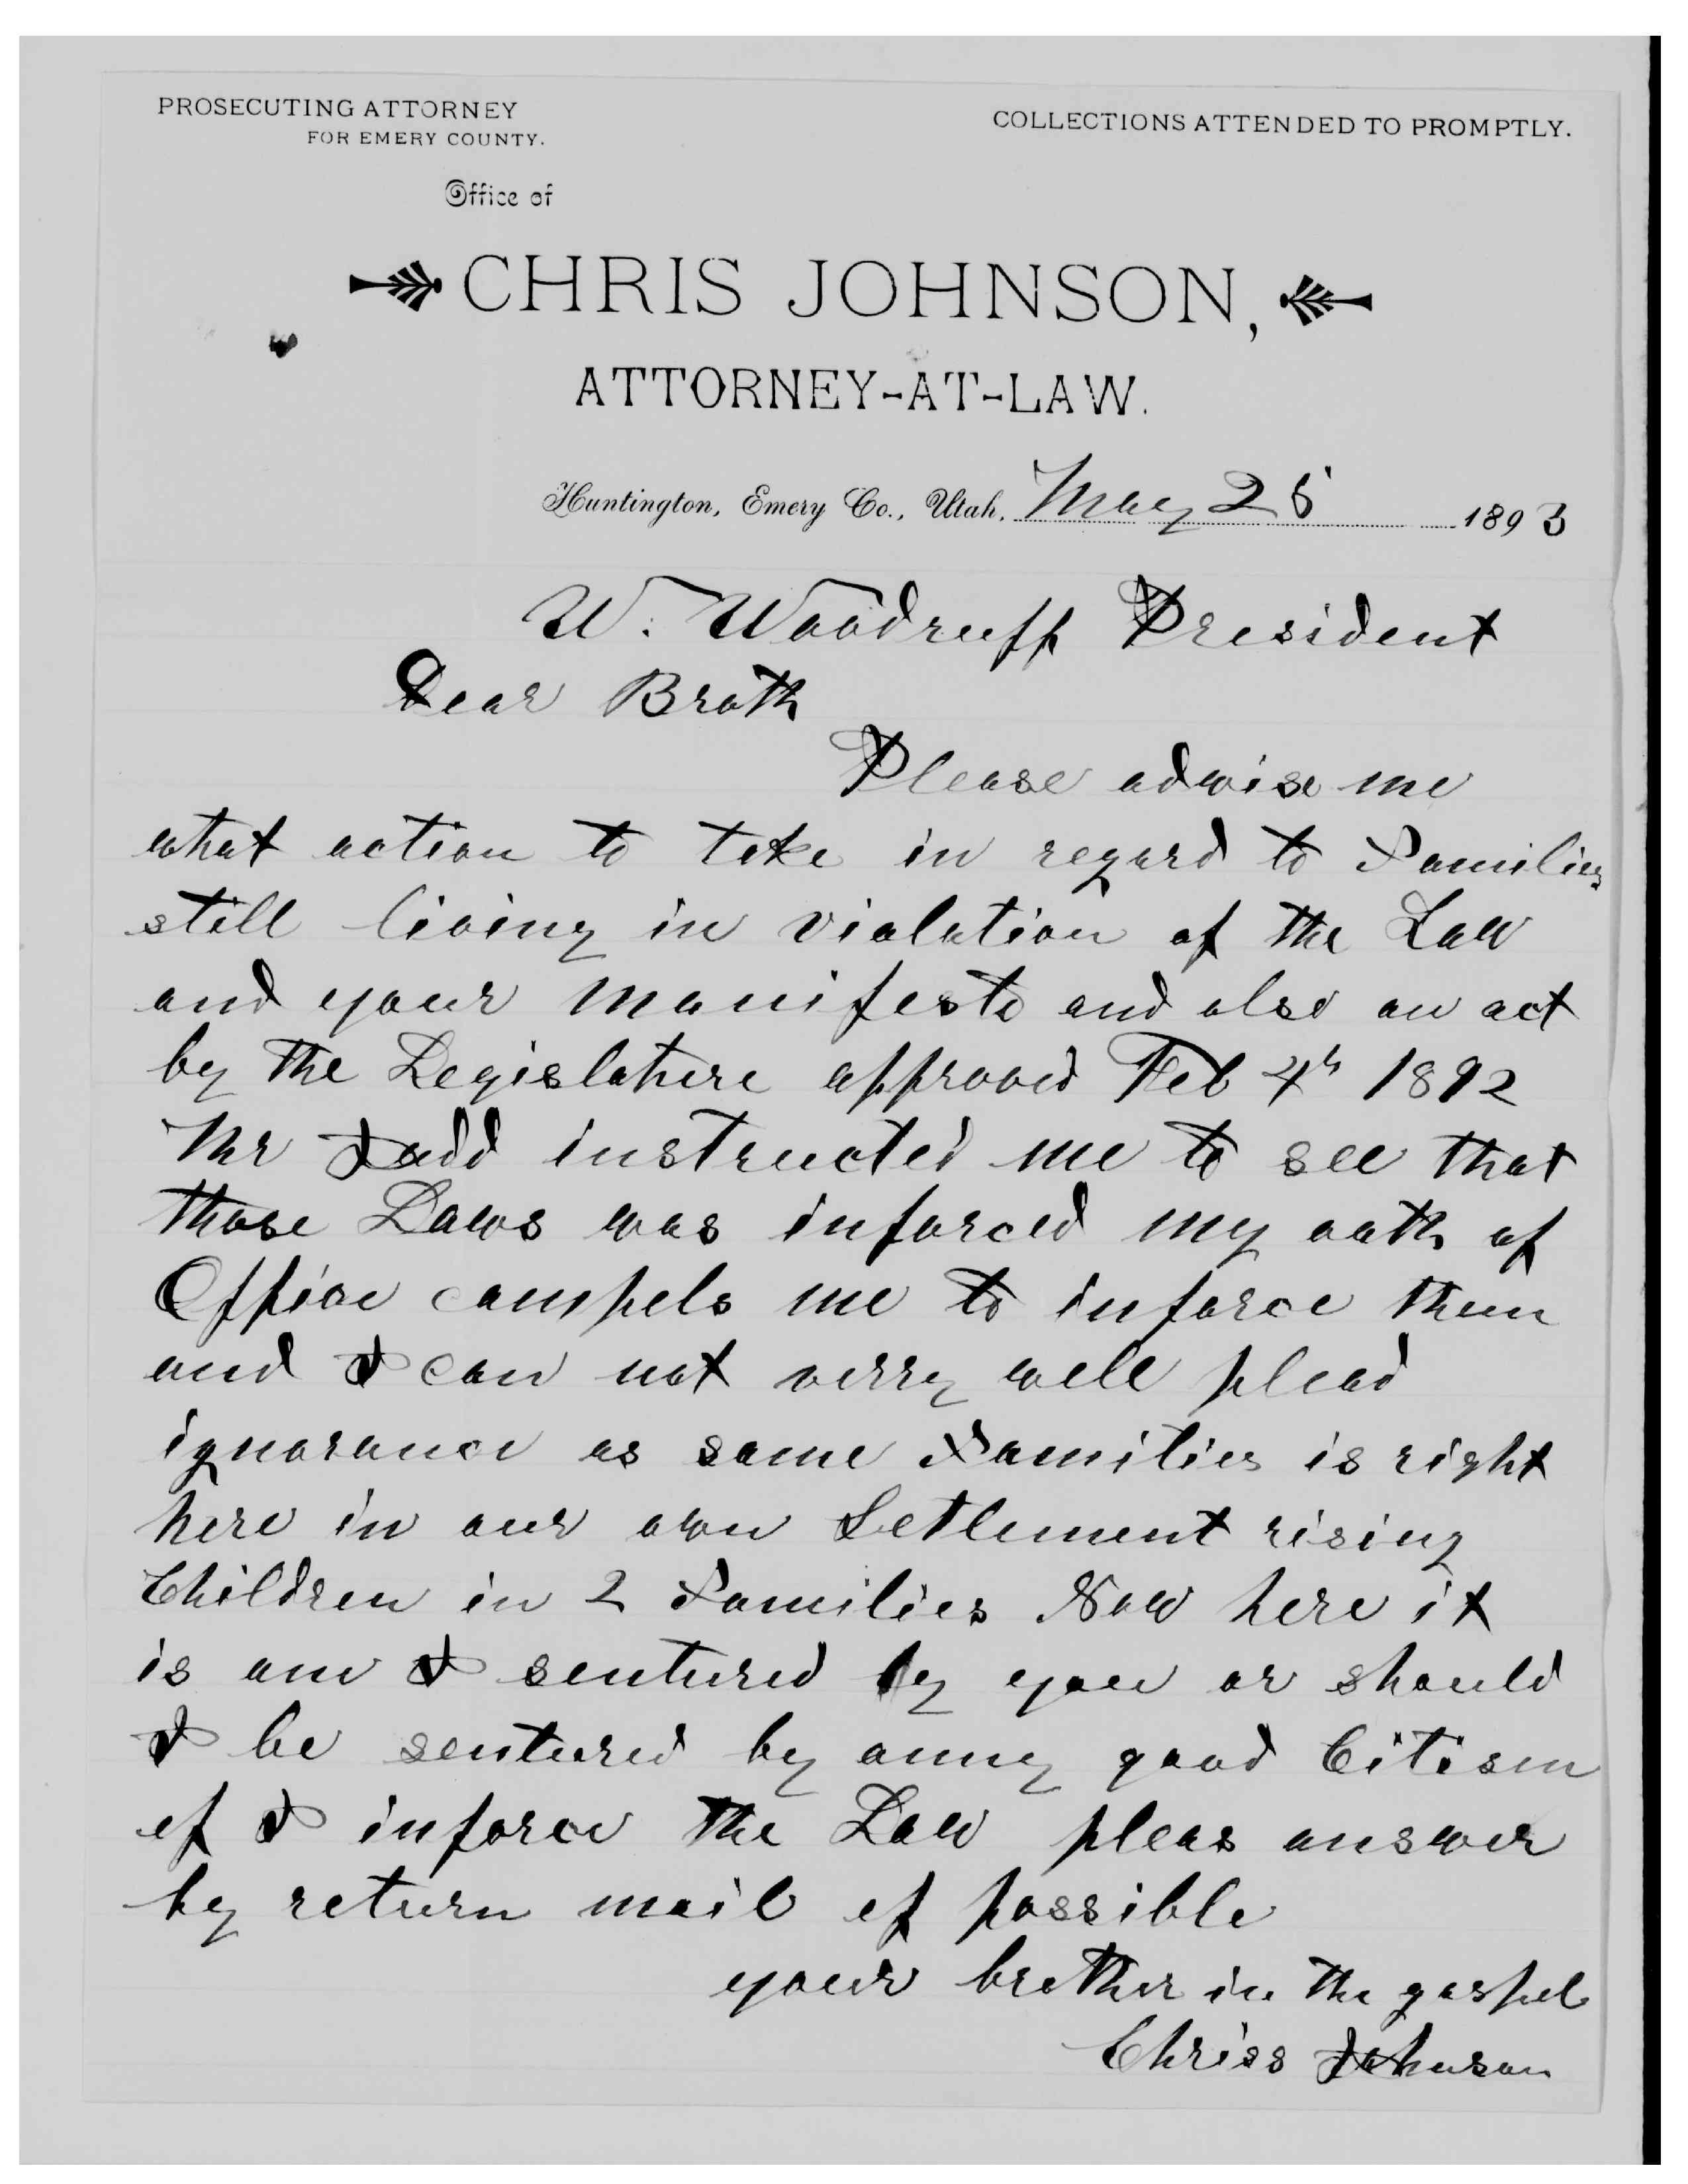 PROSECUTING ATTORNEY
FOR EMERY COUNTY.
COLLECTIONS ATTENDED TO PROMPTLY.
Office of
CHRIS JOHNSON,
ATTORNEY-AT-LAW.
Huntington, Emery Co., Utah, May 25 1893
W. Woodruff President
Dear Broth
Please adwise me
what action to take in regard to Families
still living in violation of the Law
and your manifesto and also an act
by the Legislature approved Feb 4th 1892
Mr Judd instructed me to see that
those Laws was inforced my oath of
Office compels me to inforce them
and I can not verry well plead
ignorance as some Families is right
here in our own Setlement rising
Children in 2 Families Now here it
is am I sentured by you or should
I be sentured by anny good Citisen
ef I inforce the Law pleas answer
by return mail ef possible
your brother in the gospel
Chriss Johnson